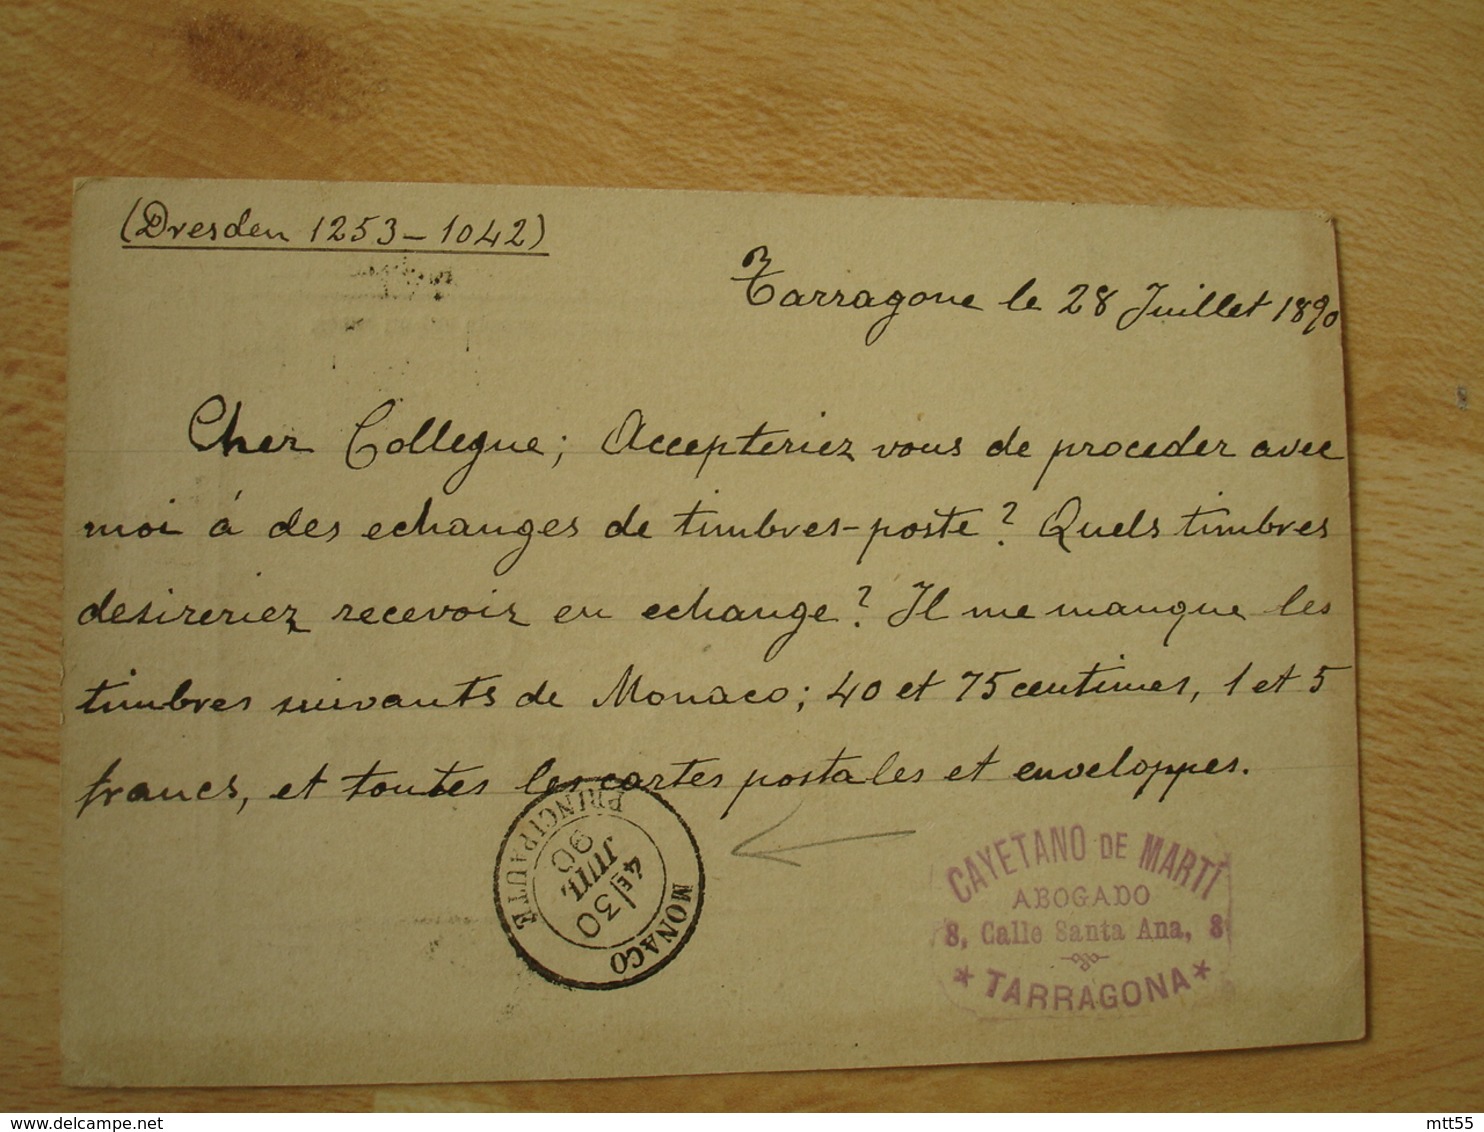 (Dresden 1253-1042)
Tarragone le 28 Juillet 1890
Cher Collegue; Accepteriez vous de proceder avec
moi á des echanges de timbres-poste? Quels timbres
desireriez recevoir en echange? Il me manque les
timbres suivants de Monaco; 40 et 75 centimes, 1 et 5
francs, et toutes les cartes postales et enveloppes.
MONACO
PRINCIPAUTÉ
4E/30
JUIL.
90
CAYETANO DE MARTÍ
ABOGADO
8, Calle Santa Ana, 8
* TARRAGONA *
mtt55